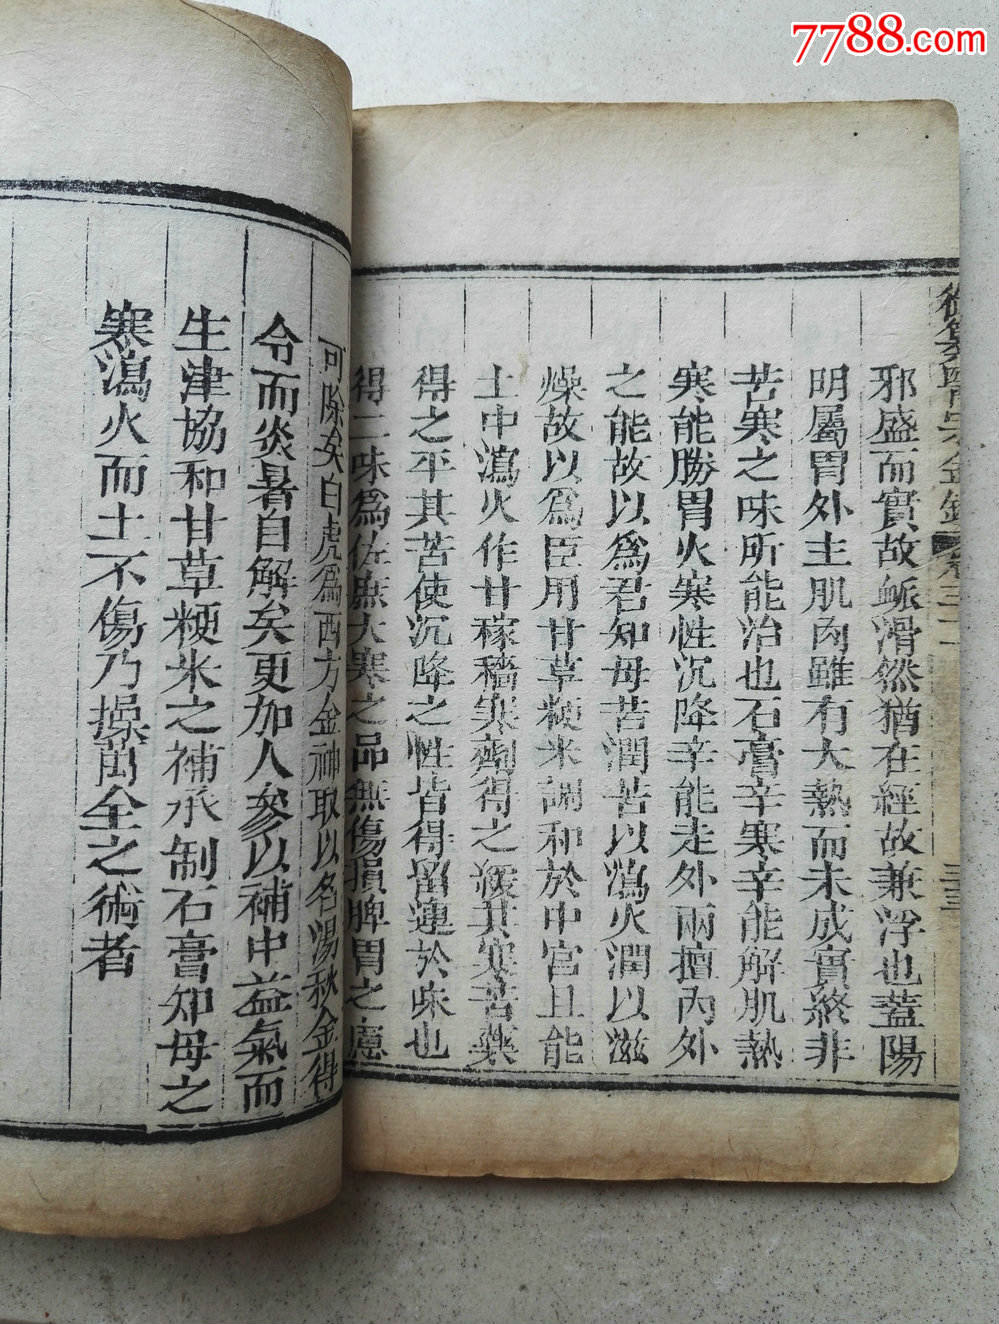 7788.com
御纂醫宗金鑑 卷三十 三三
邪盛而實故䘑滑然猶在經故兼浮也蓋陽
明屬胃外主肌肉雖有大熱而未成實終非
苦寒之味所能治也石膏辛寒辛能解肌熱
寒能勝胃火寒性沉降辛能走外兩擅內外
之能故以爲君知母苦潤苦以瀉火潤以滋
燥故以爲臣用甘草粳米調和於中宮且能
土中瀉火作甘稼穡寒劑得之緩其寒苦藥
得之平其苦使沉降之性皆得留連於味也
得二味爲佐庶大寒之品無傷損脾胃之慮
可除矣白虎爲西方金神取以名湯秋金得
令而炎暑自解矣更加人參以補中益氣而
生津協和甘草粳米之補承制石膏知母之
寒瀉火而土不傷乃操萬全之術者